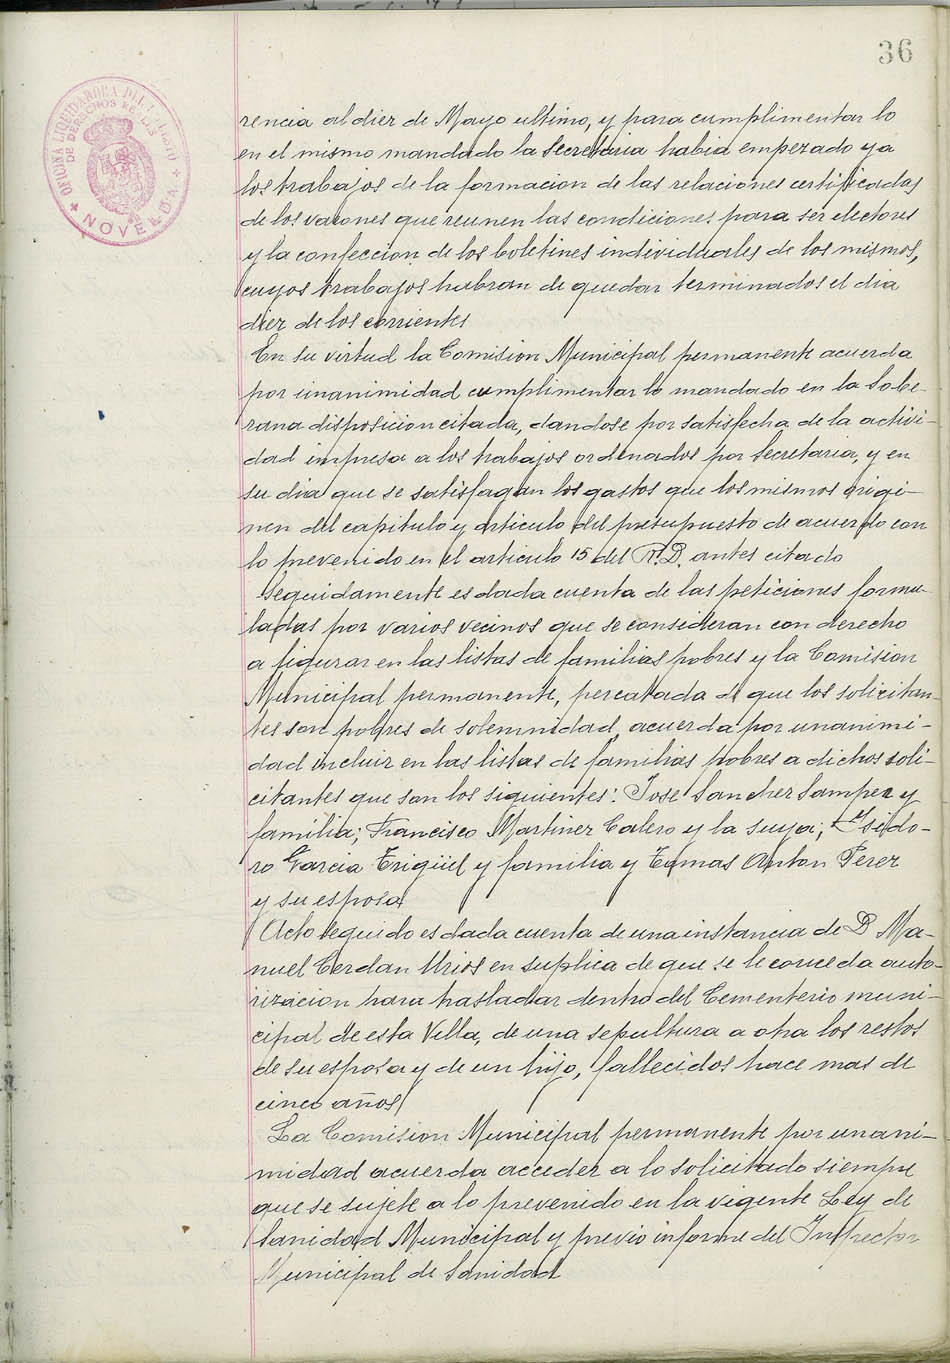 36
OFICINA LIQUIDADORA DEL
DE DERECHOS REALES
NOVELDA
rencia al diez de Mayo ultimo, y para cumplimentar lo
en el mismo mandado la Secretaria habia empezado ya
los trabajos de la formacion de las relaciones certificadas
de los varones que reunen las condiciones para ser electores
y la confeccion de los boletines individuales de los mismos,
cuyos trabajos habran de quedar terminados el dia
diez de los corrientes
En su virtud la Comision Municipal permanente acuerda
por unanimidad cumplimentar lo mandado en la Sobe-
rana disposicion citada, dandose por satisfecha de la activi-
dad impresa a los trabajos ordenados por Secretaria, y en
su dia que se satisfagan los gastos que los mismos origi-
nen del capitulo y articulo del presupuesto de acuerdo con
lo prevenido en el articulo 15 del R.D. antes citado
Seguidamente es dada cuenta de las peticiones formu-
ladas por varios vecinos que se consideran con derecho
a figurar en las listas de familias pobres y la Comision
Municipal permanente, percatada de que los solicitan-
tes son pobres de solemnidad, acuerda por unanimi-
dad incluir en las listas de familias pobres a dichos soli-
citantes que son los siguientes: José Sanchez Samper y
familia; Francisco Martinez Calero y la suya; Ysido-
ro Garcia Erigüel y familia y Tomas Anton Perez
y su esposa
Acto seguido es dada cuenta de una instancia de D Ma-
nuel Cerdan Mrios en suplica de que se le conceda auto-
rizacion para trasladar dentro del Cementerio muni-
cipal de esta Villa, de una sepultura a otra los restos
de su esposa y de un hijo, fallecidos hace mas de
cinco años
La Comision Municipal permanente por unani-
midad acuerda acceder a lo solicitado siempre
que se sujete a lo prevenido en la vigente Ley de
Sanidad Municipal y previo informe del Inspector
Municipal de Sanidad